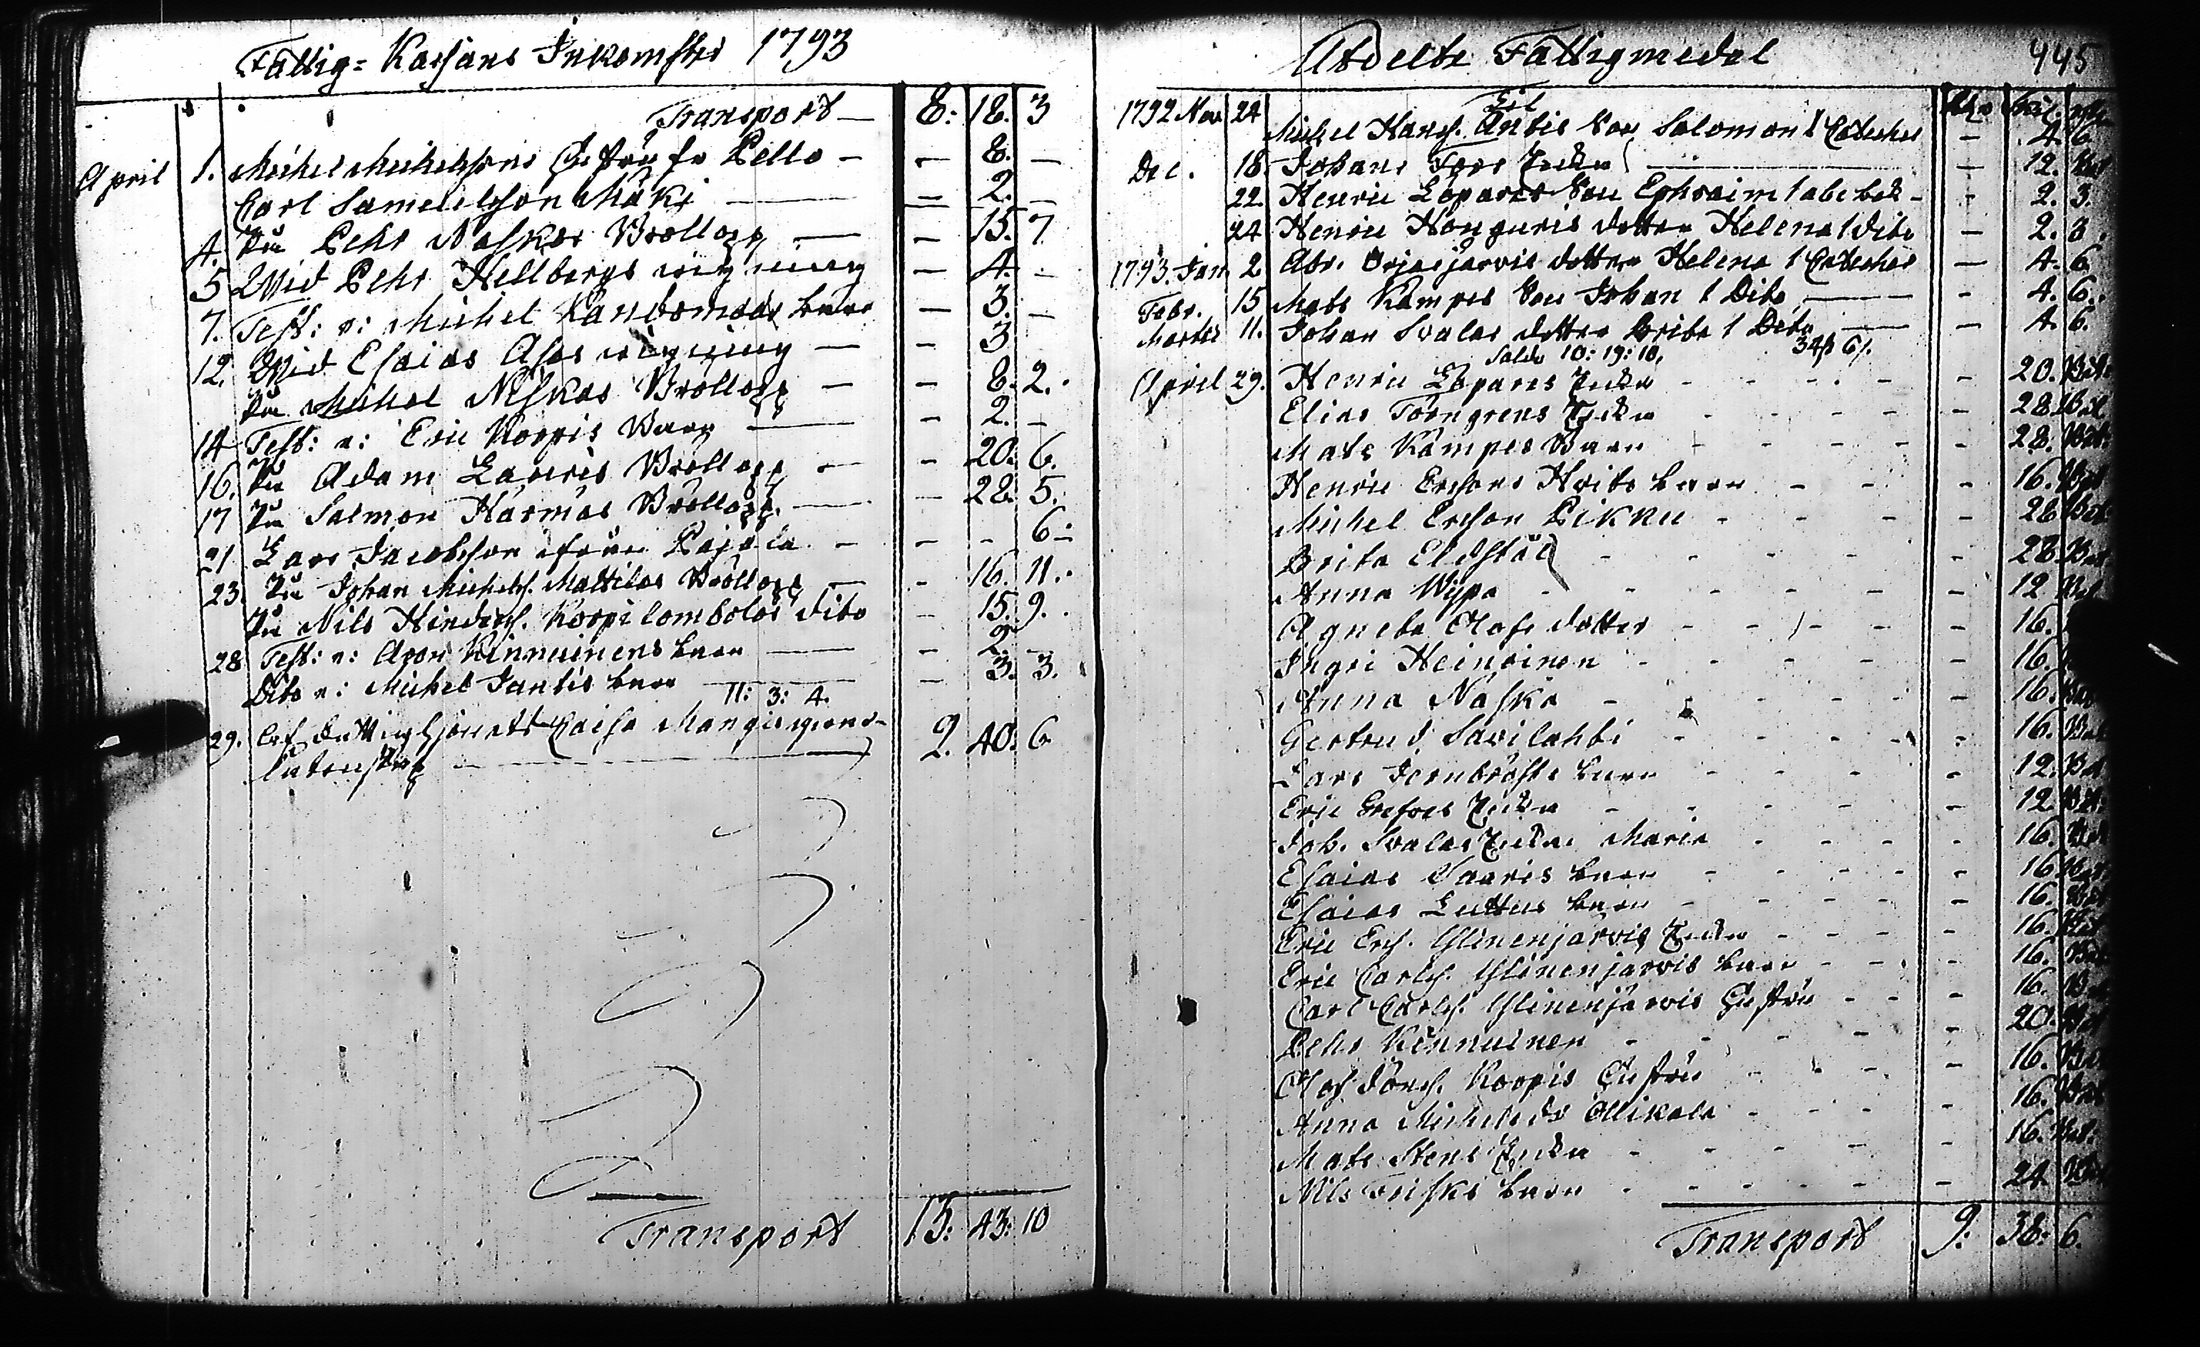 Fattig= Kassans Inkomster 1793
Transport — 8: 18. 3
April 1. Michel Michelssons Hustru fr Pello — — 8. —
Carl Samuelsson Mäki — — 2. —
4. På Pehr Naskas Bröllopp — — 15. 7
5 Wid Pehr Hellbergs wigning — 4. -
7. Test: e: Michel Randomaas barn — 3. —
12. Wid Esaias Ahos wigning — — 3
På Michel Niskas Bröllopp — — 8. 2.
14 Test: e: Eric Korpis Barn — — 2. -
16. På Adam Lauris Bröllopp — — 20. 6.
17 På Salmon Harmas Bröllopp. — — 28. 5.
21 Lars Jacobsson ifrån Pajala - — - 6:
23. På Johan Michels. Mattilas Bröllopp — - 16. 11.
På Nils Hindrics. Korpilombolos dito - 15. 9.
28 Test: e: Aron Kinnuinens barn — - 2. -
Dito e: Michel Jantis barn — — 3. 3.
11: 3: 4.
29. Caisa 2. 40. 6
Transport 13: 43: 10
Utdelte Fattigmedel 445
Til
1792 Nov 24 Michel Hans. Antis Son Salomon 1 Cateches — 4. 6.
Dec. 18. Johans Fors Enka — 12.
22 Henric Lopares Son Ephraim 1 abc bok - - 2. 3.
24 Henric Konguris dotter Helena 1 dito - 2. 3.
1793. Jan 2. Abr. Orjasjarvis dotter Helena 1 Cateches — 4. 6
Febr. 15 Mats Kampes Son Johan 1 Dito — - 4. 6.
Martii 11. Johan Svalas dotter Brita 1 Dito — - 4. 6.
Saldo 10: 19: 10. 34ß 6/.
April 29. Henric Lopares Enka - - - - 20.
Elias Törngrens Enka - - - - 28
Mats Kämpes Barn - - - - 28.
Henric Ersons Hvits barn - - - 16.
Michel Erson Pikku - - - - 28
Brita Eldstål - - - - 28
Anna Wypa - - - - 12
Agneta Olofs dotter - - - - 16.
Ingri Heinoinen - - - - 16.
Anna Naska - - - 16.
Gertrud Savilahti - - - - 16.
Lars Jernbrofts barn - - - - 12.
Eric Enka - - - - 12
Joh. Svalas Enka Maria - - - 16.
Esaias Saaris barn - - - - 16
Esaias Luttus barn - - - - 16.
Eric Ers. Ylinenjärvis Enka - - - 16.
Eric Carls. Ylinenjarvis barn - - - 16.
Carl Carls. Ylinenjärvis Hustru - - - 16.
Pehr Kinnuinen - - - - 20.
Olof Jöns. Korpis Hustru - - - 16.
Anna Michelsd. Ollikala - - - - 16.
Mats Stens Enka - - - - 16.
Nils Frisks barn - - - - 24
Transport 9: 38: 6.